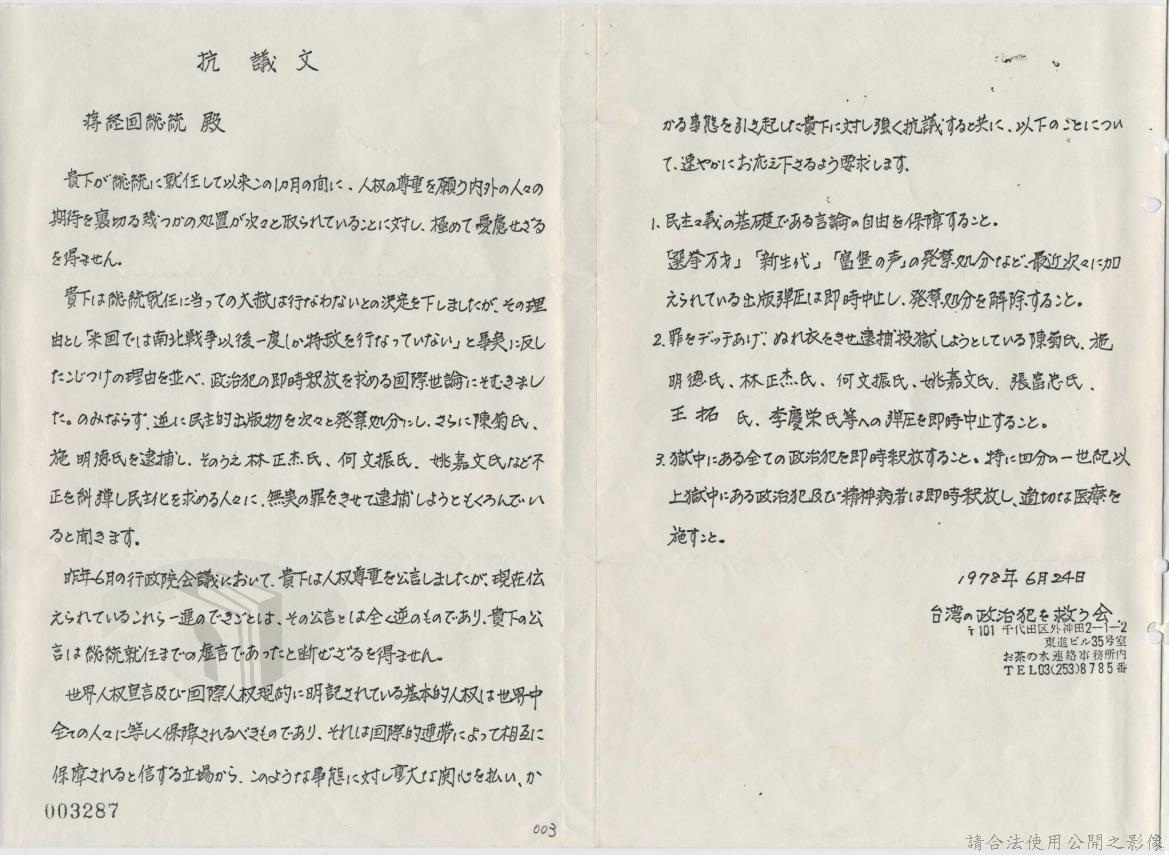 抗議文
蒋経国総統 殿
貴下が総統に就任して以来この1カ月の間に、人权の尊重を願う内外の人々の
期待を裏切る幾つかの処置が次々と取られていることに対し、極めて憂慮せざる
を得ません。
貴下は総統就任に当っての大赦は行なわないとの決定を下しましたが、その理
由とし「米国では南北戦争以後一度しか特赦を行なっていない」と事実に反し
たこじつけの理由を並べ、政治犯の即時釈放を求める国際世論にそむきまし
た。のみならず、逆に民主的出版物を次々と発禁処分にし、さらに陳菊氏、
施明徳氏を逮捕し、そのうえ林正杰氏、何文振氏、姚嘉文氏など不
正を糾弾し民主化を求める人々に、無実の罪をきせて逮捕しようともくろんでい
ると聞きます。
昨年6月の行政院会議において、貴下は人权尊重を公言しましたが、現在伝
えられているこれら一連のできごとは、その公言とは全く逆のものであり、貴下の公
言は総統就任までの虚言であったと断ぜざるを得ません。
世界人权宣言及び国際人权規約に明記されている基本的人权は世界中
全ての人々に等しく保障されるべきものであり、それは国際的連帯によって相互に
保障されると信する立場から、このような事態に対し重大な関心を払い、か
003287
003
かる事態を引き起した貴下に対し強く抗議すると共に、以下のことについ
て、速やかにお応え下さるよう要求します。
1. 民主々義の基礎である言論の自由を保障すること。
「選挙万才」「新生代」「富堡の声」の発禁処分など、最近次々に加
えられている出版弾圧は即時中止し、発禁処分を解除すること。
2. 罪をデッチあげ、ぬれ衣をきせ逮捕投獄しようとしている陳菊氏、施
明徳氏、林正杰氏、何文振氏、姚嘉文氏、張富忠氏、
王拓氏、李慶栄氏等への弾圧を即時中止すること。
3. 獄中にある全ての政治犯を即時釈放すること。特に四分の一世紀以
上獄中にある政治犯及び精神病者は即時釈放し、適切な医療を
施すこと。
1978年6月24日
台湾の政治犯を救う会
〒101 千代田区外神田2-1-2
東進ビル35号室
お茶の水連絡事務所内
TEL03(253)8785番
請合法使用公開之影像